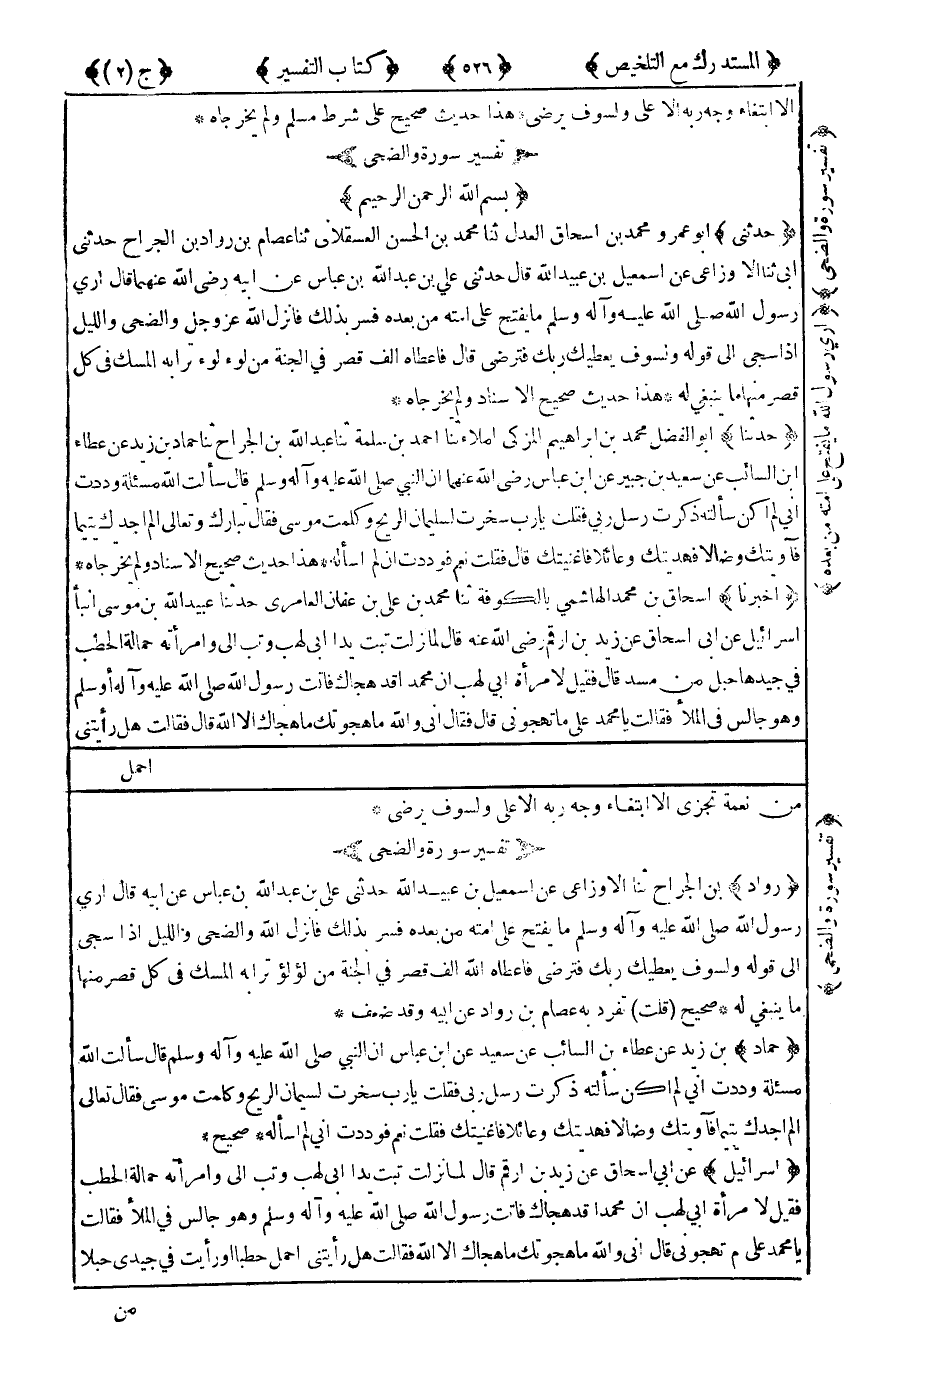 ﴿ المستدرك مع التلخيص ﴾ ﴿ ٥٢٦ ﴾ ﴿ كتاب التفسير ﴾ ﴿ ج (٢) ﴾
الا ابتغاء وجه ربه الا على ولسوف يرضى * هذا حديث صحيح على شرط مسلم ولم يخرجاه *
تفسير سورة والضحى
﴿ بسم الله الرحمن الرحيم ﴾
﴿ حدثنى ﴾ ابو عمرو محمد بن اسحاق العدل ثنا محمد بن الحسن العسقلانى ثنا عصام بن رواد بن الجراح حدثنى
ابى ثنا الا وزاعى عن اسمعيل بن عبيد الله قال حدثنى علي بن عبد الله بن عباس عن ابيه رضى الله عنهما قال اري
رسول الله صلى الله عليه وآله وسلم ما يفتح على امته من بعده فسر بذلك فانزل الله عز وجل والضحى والليل
اذا سجى الى قوله ولسوف يعطيك ربك فترضى قال فاعطاه الف قصر في الجنة من لوء لوء ترابه المسك فى كل
قصر منها ما ينبغي له * هذا حديث صحيح الا سناد ولم يخرجاه *
﴿ حدثنا ﴾ ابو الفضل محمد بن ابراهيم المزكى املاء ثنا احمد بن سلمة ثنا عبد الله بن الجراح ثنا حماد بن زيد عن عطاء
ابن السائب عن سعيد بن جبير عن ابن عباس رضى الله عنهما ان النبي صلى الله عليه وآله وسلم قال سألت الله مسئلة وددت
انى لم اكن سألته ذكرت رسل ربي فقلت يارب سخرت لسليمان الريح وكلمت موسى فقال تبارك وتعالى الم اجدك يتيما
فآويتك وضالا فهديتك وعائلا فاغنيتك قال فقلت نعم فوددت ان لم اسأله * هذا حديث صحيح الاسناد ولم يخرجاه *
﴿ اخبرنا ﴾ اسحاق بن محمد الهاشمي بالكوفة ثنا محمد بن على بن عفان العامرى حدثنا عبيد الله بن موسى انبأ
اسرائيل عن ابى اسحاق عن زيد بن ارقم رضى الله عنه قال لما نزلت تبت يدا ابى لهب وتب الى وامرأته حمالة الحطب
في جيدها حبل من مسد قال فقيل لامرأة ابي لهب ان محمدا قد هجاك فاتت رسول الله صلى الله عليه وآله وسلم
وهو جالس فى الملأ فقالت يا محمد على ما تهجونى قال فقال انى والله ما هجوتك ما هجاك الا الله قال فقالت هل رأيتنى
احمل
من نعمة تجزى الا ابتغاء وجه ربه الاعلى ولسوف يرضى *
تفسير سورة والضحى
﴿ رواد ﴾ بن الجراح ثنا الاوزاعى عن اسمعيل بن عبيد الله حدثنى على بن عبد الله بن عباس عن ابيه قال اري
رسول الله صلى الله عليه وآله وسلم ما يفتح على امته من بعده فسر بذلك فانزل الله والضحى والليل اذا سجى
الى قوله ولسوف يعطيك ربك فترضى فاعطاه الله الف قصر في الجنة من لؤلؤ ترابه المسك فى كل قصر منها
ما ينبغي له * صحيح (قلت) تفرد به عصام بن رواد عن ابيه وقد ضعف *
﴿ حماد ﴾ بن زيد عن عطاء بن السائب عن سعيد عن ابن عباس ان النبي صلى الله عليه وآله وسلم قال سألت الله
مسئلة وددت انى لم اكن سألته ذكرت رسل ربى فقلت يارب سخرت لسليمان الريح وكلمت موسى فقال تعالى
الم اجدك يتيما فآويتك وضالا فهديتك وعائلا فاغنيتك فقلت نعم فوددت انى لم اسأله * صحيح *
﴿ اسرائيل ﴾ عن ابي اسحاق عن زيد بن ارقم قال لما نزلت تبت يدا ابى لهب وتب الى وامرأته حمالة الحطب
فقيل لا مرأة ابي لهب ان محمدا قد هجاك فاتت رسول الله صلى الله عليه وآله وسلم وهو جالس في الملأ فقالت
يا محمد على م تهجونى قال انى والله ما هجوتك ما هجاك الا الله فقالت هل رأيتنى احمل حطبا او رأيت في جيدى حبلا
من
﴿ تفسير سورة والضحى ﴾
﴿ اري رسول الله ما يفتح على امته من بعده ﴾
﴿ تفسير سورة والضحى ﴾